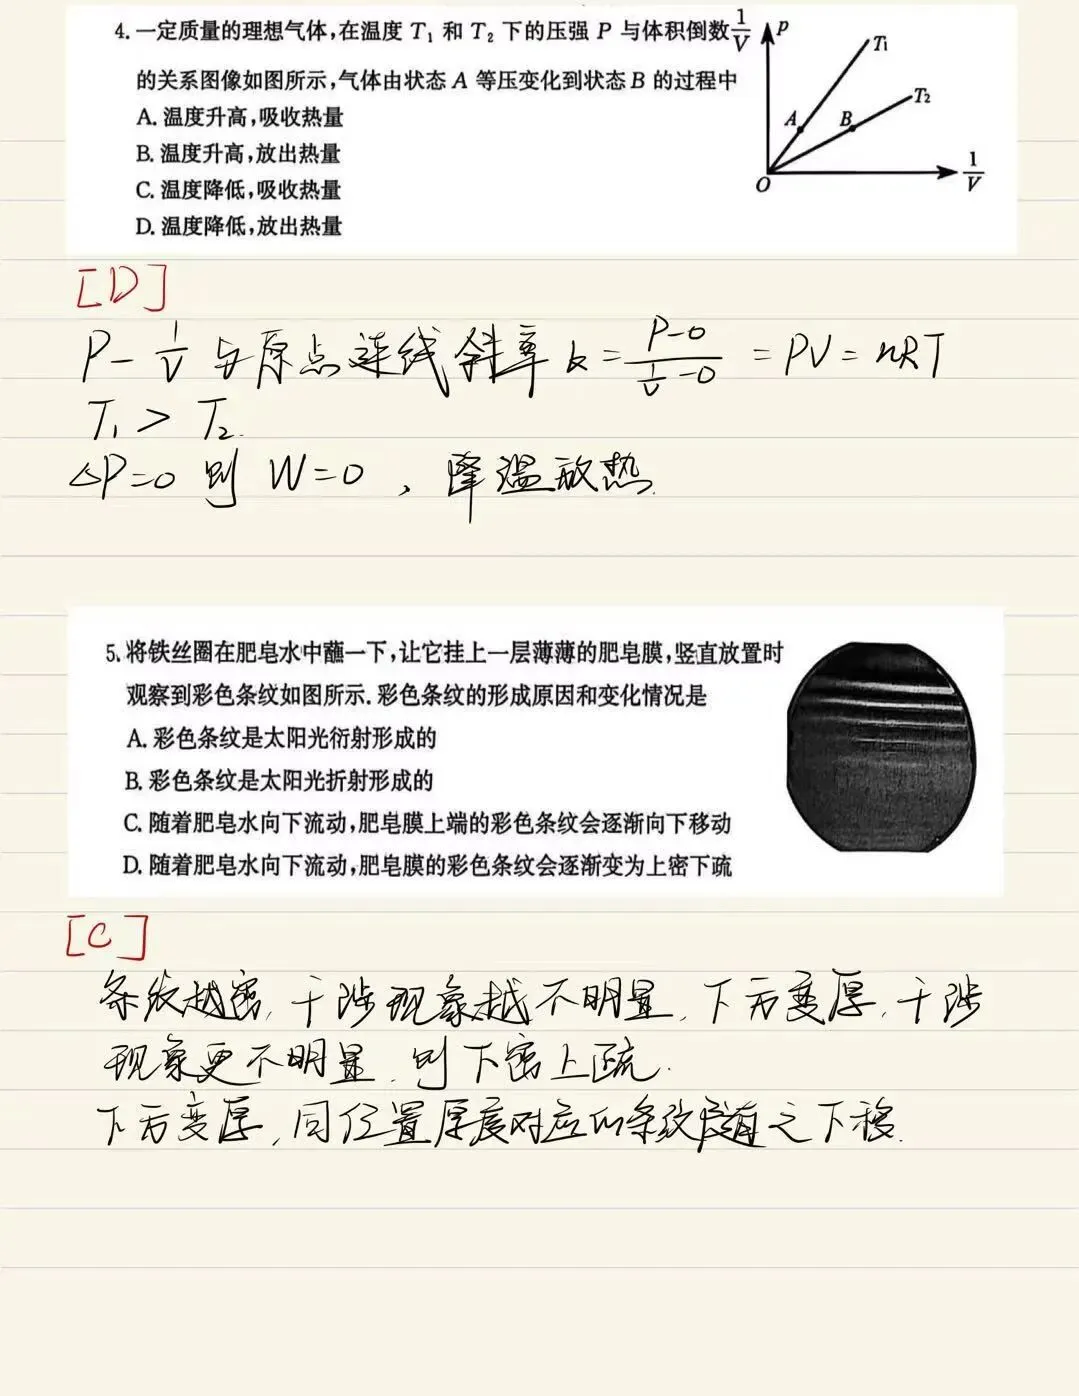 4. 一定质量的理想气体,在温度 T₁ 和 T₂ 下的压强 P 与体积倒数 1/V
的关系图像如图所示,气体由状态 A 等压变化到状态 B 的过程中
A. 温度升高,吸收热量
B. 温度升高,放出热量
C. 温度降低,吸收热量
D. 温度降低,放出热量
p
T₁
T₂
A
B
O
1/V
[D]
P - 1/V 与原点连线斜率 k = (P-0)/(1/V -0) = PV = nRT
T₁ > T₂.
△P=0 则 W=0 , 降温放热.
5. 将铁丝圈在肥皂水中蘸一下,让它挂上一层薄薄的肥皂膜,竖直放置时
观察到彩色条纹如图所示. 彩色条纹的形成原因和变化情况是
A. 彩色条纹是太阳光衍射形成的
B. 彩色条纹是太阳光折射形成的
C. 随着肥皂水向下流动,肥皂膜上端的彩色条纹会逐渐向下移动
D. 随着肥皂水向下流动,肥皂膜的彩色条纹会逐渐变为上密下疏
[C]
条纹越密, 干涉现象越不明显, 下方变厚, 干涉
现象更不明显, 则下密上疏.
下方变厚, 同位置厚度对应的条纹 之下移.